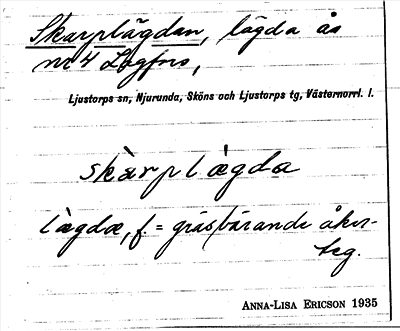 Skarplägdan, lägda ås
nr 4 Lagfors,
Ljustorps sn, Njurunda, Sköns och Ljustorps tg, Västernorrl. l.
skàrplàgdæ
làgdæ, f. = gräsbärande åker-
teg.
ANNA-LISA ERICSON 1935